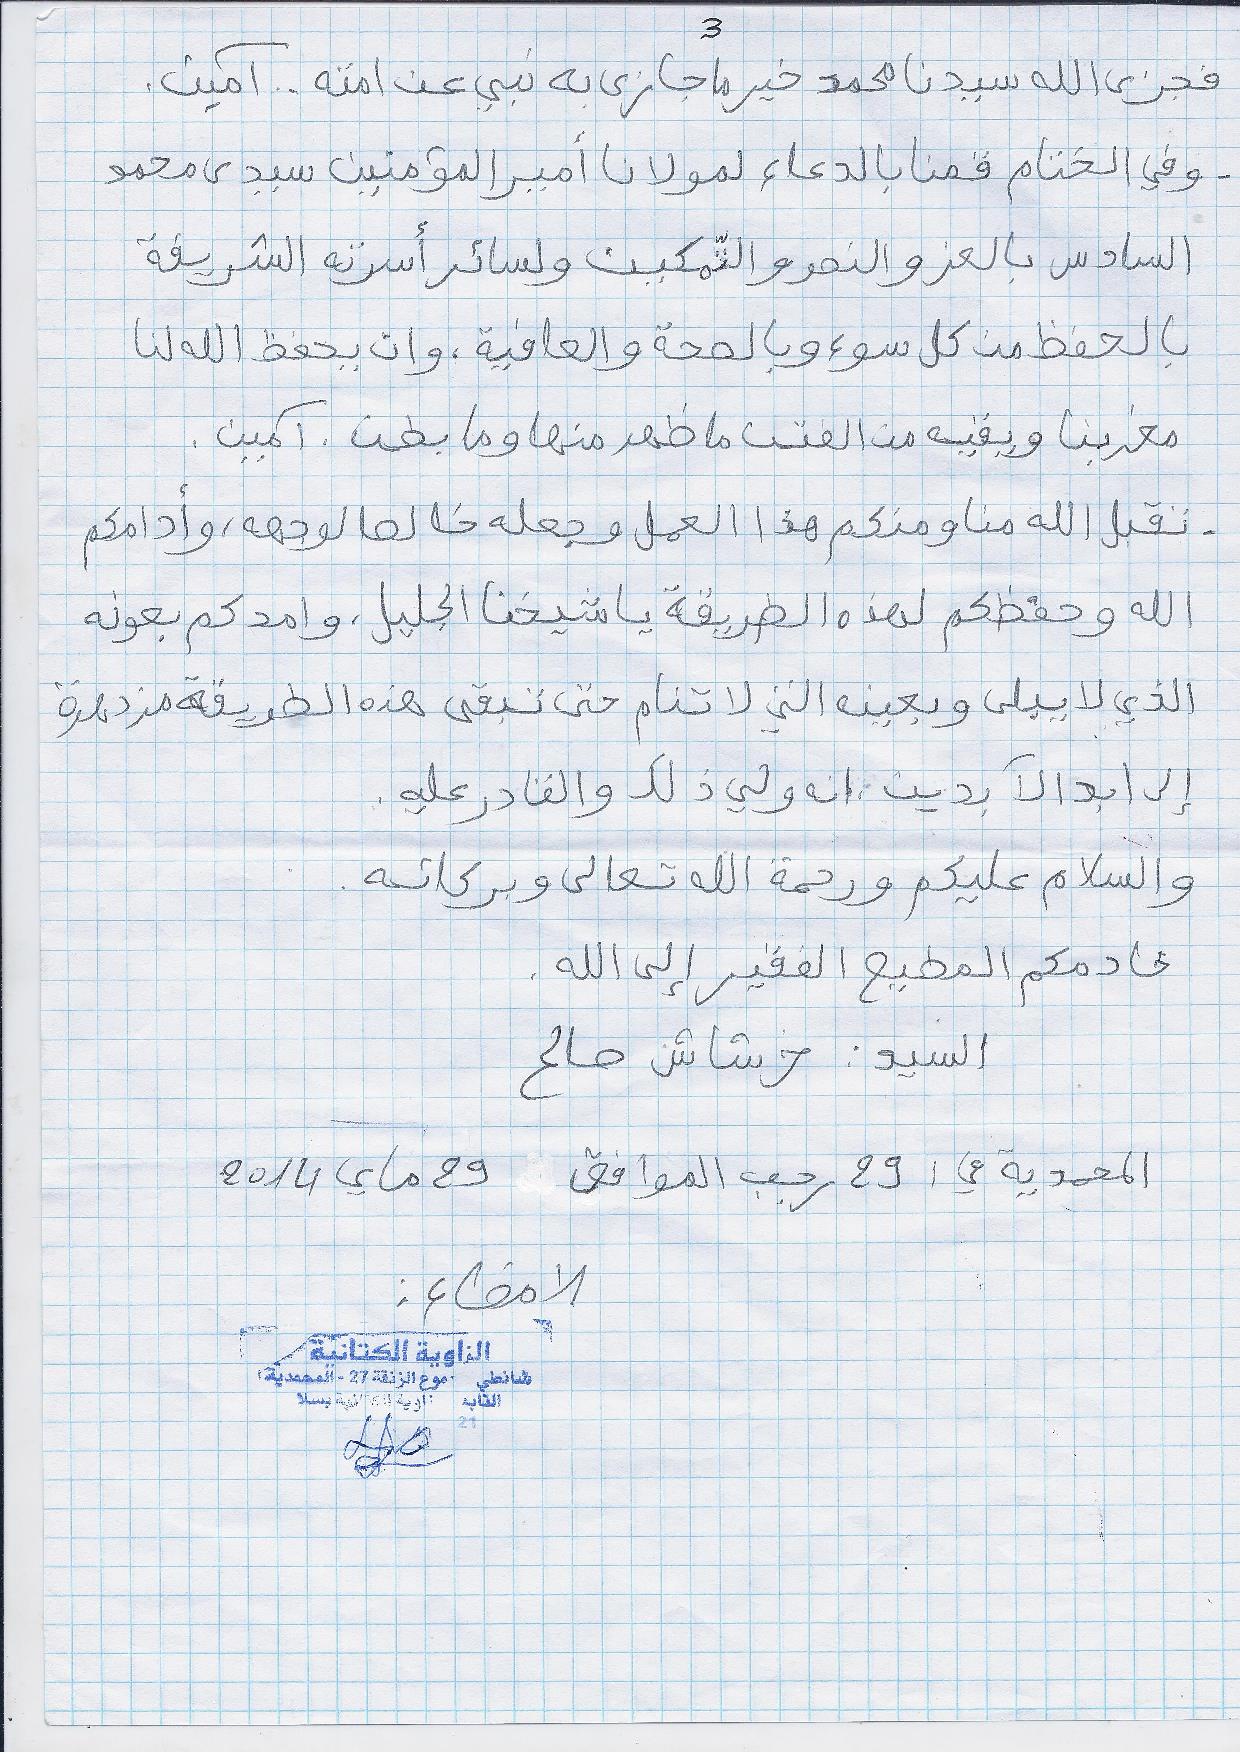 3
فجزى الله سيدنا محمد خير ما جازى به نبي عن امته .. آمين.
- وفي الختام قمنا بالدعاء لمولانا أمير المؤمنين سيدي محمد
السادس بالعز والنصر والتّمكين ولسائر أسرته الشريفة
بالحفظ من كل سوء وبالصحة والعافية، وان يحفظ الله لنا
مغربنا ويقيه من الفتن ما ظهر منها وما بطن. آمين.
- تقبل الله منا ومنكم هذا العمل وجعله خالصا لوجهه، وأدامكم
الله وحفظكم لهذه الطريقة يا شيخنا الجليل، وامدكم بعونه
الذي لا يبلى وبعينه التي لا تنام حتى تبقى هذه الطريقة مزدهرة
إلى ابد الآبدين، انه ولي ذلك والقادر عليه.
والسلام عليكم ورحمة الله تعالى وبركاته.
خادمكم المطيع الفقير إلى الله.
السيد: خرشاش صالح
المحمدية في: 29 رجب الموافق 29 ماي 2014
الامضاء:
الزاوية الكتانية
موع الزنقة 27 - المحمدية
بسلا
21